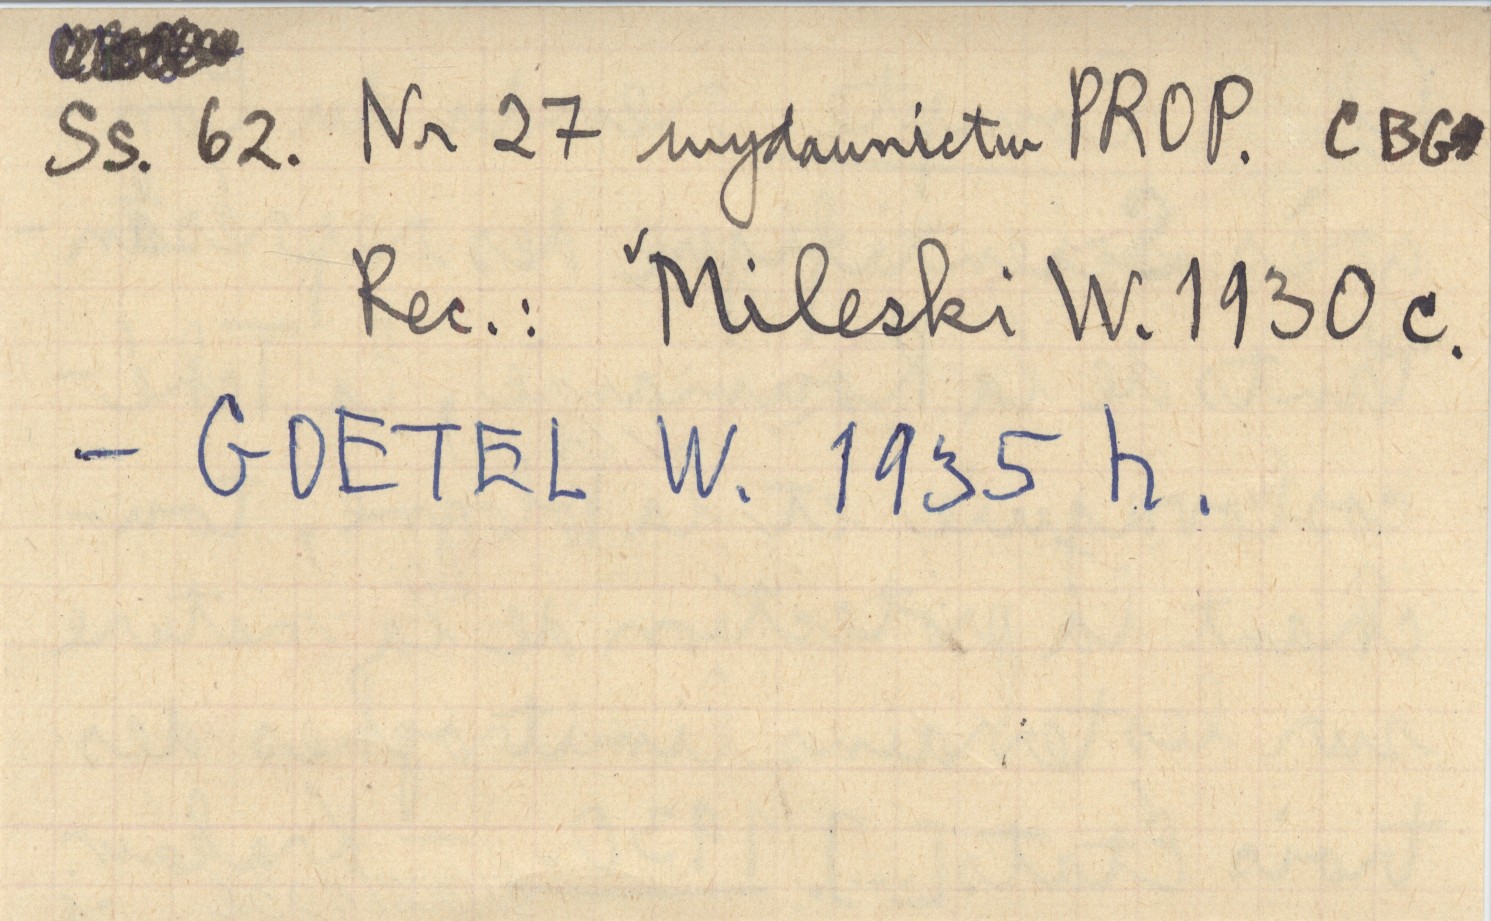 Ss. 62. Nr 27 wydawnictw PROP. CBG
Rec.: Mileski W. 1930 c.
- GOETEL W. 1935 h.